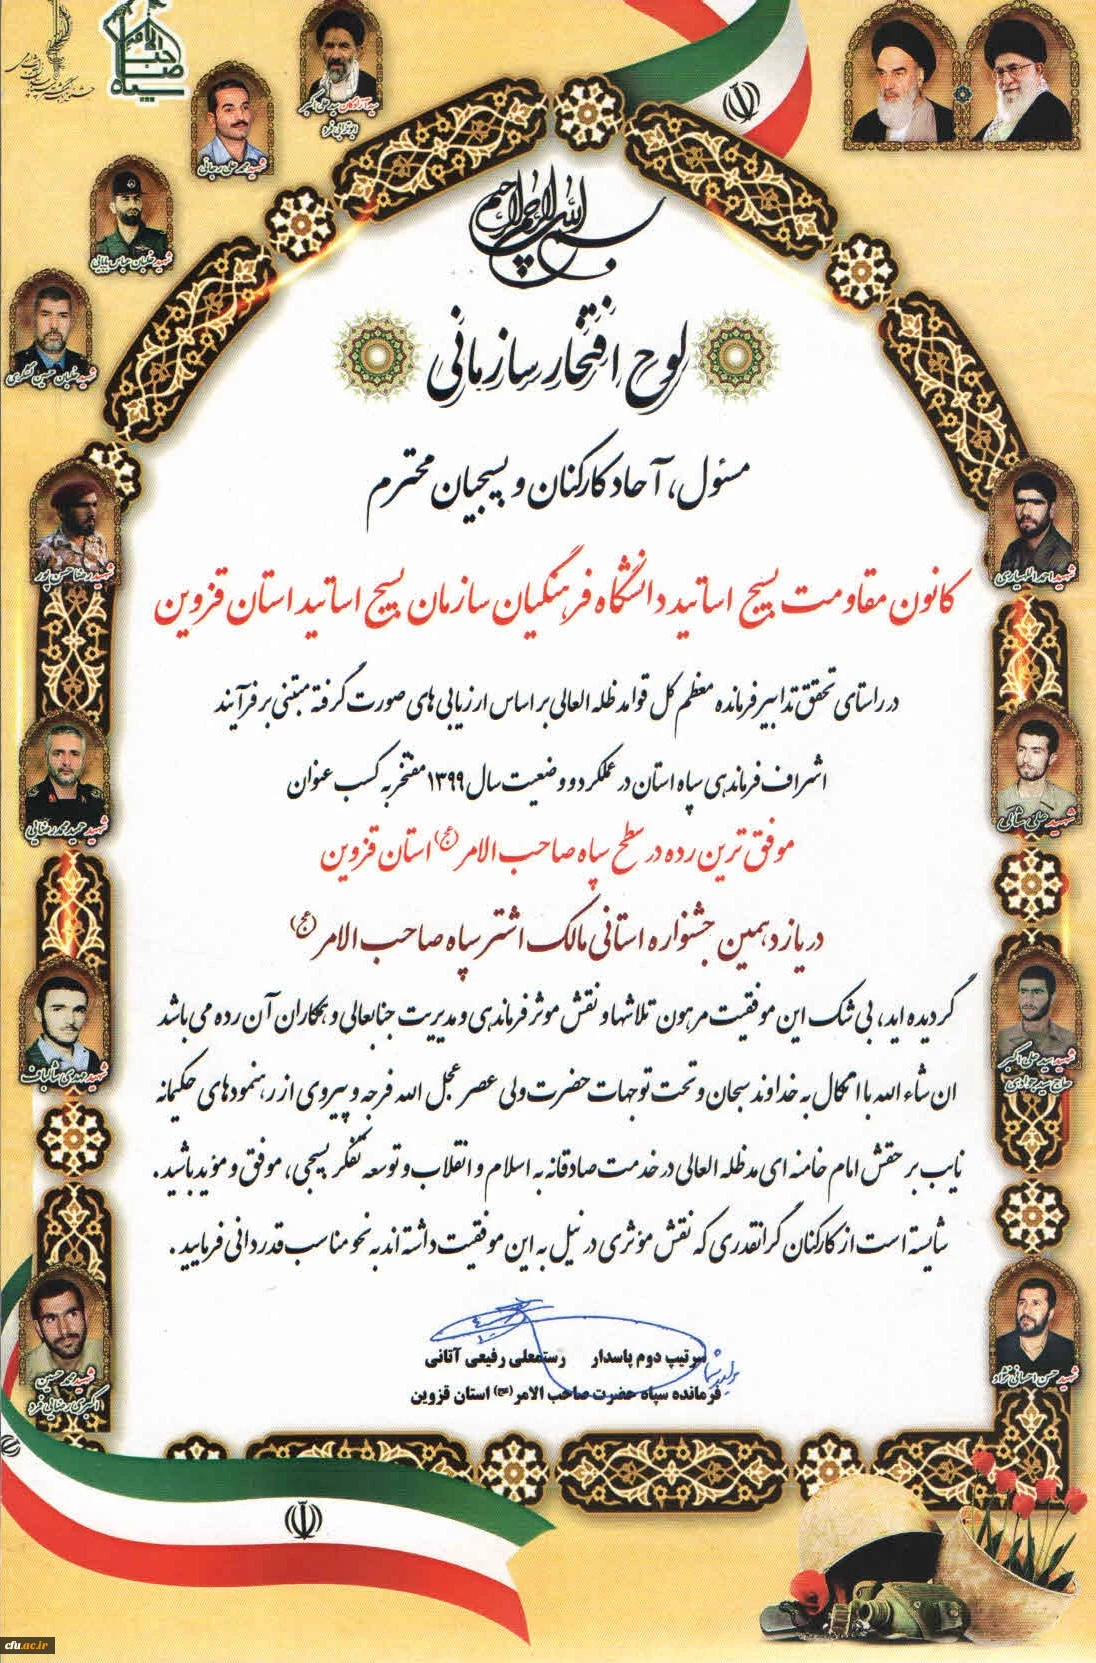 سید آزادگان سید علی اکبر
ابوترابی فرد
شهید محمد علی رجائی
شهید خلبان عباس بابایی
شهید خلبان حسین لشکری
بسم الله الرحمن الرحیم
لوح افتخار سازمانی
مسئول، آحاد کارکنان و بسیجیان محترم
کانون مقاومت بسیج اساتید دانشگاه فرهنگیان سازمان بسیج اساتید استان قزوین
در راستای تحقق تدابیر فرمانده معظم کل قوا مدظله العالی بر اساس ارزیابی های صورت گرفته مبتنی بر فرآیند
اشراف فرماندهی سپاه استان در عملکرد و وضعیت سال ۱۳۹۹ مفتخر به کسب عنوان
موفق ترین رده در سطح سپاه صاحب الامر (عج) استان قزوین
در یازدهمین جشنواره استانی مالک اشتر سپاه صاحب الامر (عج)
گردیده اید، بی شک این موفقیت مرهون تلاشها و نقش موثر فرماندهی و مدیریت جنابعالی و همکاران آن رده می باشد
ان شاء الله با اتکال به خداوند سبحان و تحت توجهات حضرت ولی عصر عجل الله فرجه و پیروی از رهنمودهای حکیمانه
نایب بر حقش امام خامنه ای مدظله العالی در خدمت صادقانه به اسلام و انقلاب و توسعه تفکر بسیجی، موفق و مؤید باشید.
شایسته است از کارکنان گرانقدری که نقش مؤثری در نیل به این موفقیت داشته اند به نحو مناسب قدردانی فرمایید.
سرتیپ دوم پاسدار رستمعلی رفیعی آتانی
فرمانده سپاه حضرت صاحب الامر (عج) استان قزوین
شهید رضا حسن پور
شهید حمید محمدرضایی
شهید مهدی شالباف
شهید محمد حسین
اکبری رضایی فرد
شهید احمد اللهیاری
شهید سید علی اکبر
حاج سید جوادی
شهید حسن احسانی نژاد
cfu.ac.ir